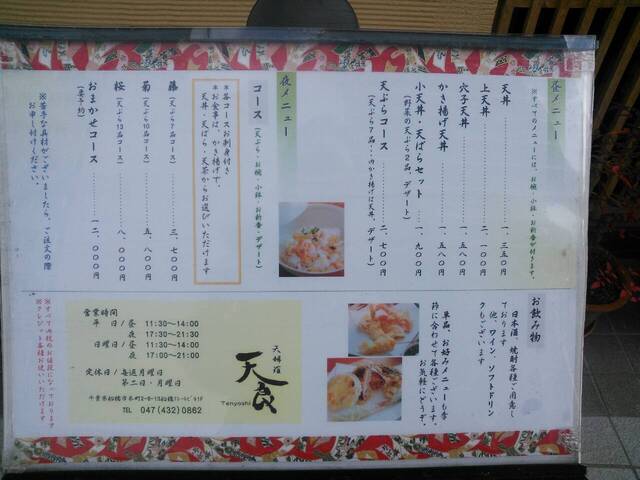 昼メニュー
※すべてのメニューには、お椀・小鉢・お新香が付きます。
天丼 一、三五〇円
上天丼 二、一〇〇円
穴子天丼 一、五八〇円
かき揚げ天丼 一、五八〇円
小天丼・天ばらセット 一、九〇〇円
(野菜の天ぷら2品、デザート)
天ぷらコース 二、七〇〇円
夜メニュー
コース (天ぷら・お椀・小鉢・お新香・デザート)
*各コースお刺身付き
*お食事は、かき揚げで、
天丼・天ばら・天茶からお選びいただけます
藤 (天ぷら7品コース) 三、七〇〇円
菊 (天ぷら10品コース) 五、八〇〇円
桜 (天ぷら13品コース) 八、〇〇〇円
おまかせコース 一二、〇〇〇円
(要予約)
※苦手な具材がございましたら、ご注文の際
お申し付けください。
お飲み物
日本酒、焼酎各種ご用意し
ております
他、ワイン、ソフトドリン
クもございます
単品、お好みメニューも季
節に合わせて各種ございます。
お気軽にどうぞ。
天婦羅
天食
Tenyoshi
営業時間
平 日/昼 11:30~14:00
夜 17:30~21:30
日曜日/昼 11:30~14:00
夜 17:00~21:00
定休日/毎週月曜日
第二日・月曜日
TEL 047(432)0862